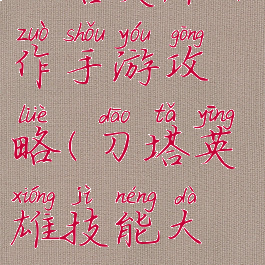 zuò shǒu yóu gōng
作手游攻
lüè dāo tǎ yīng
略(刀塔英
xióng jì néng dà
雄技能大